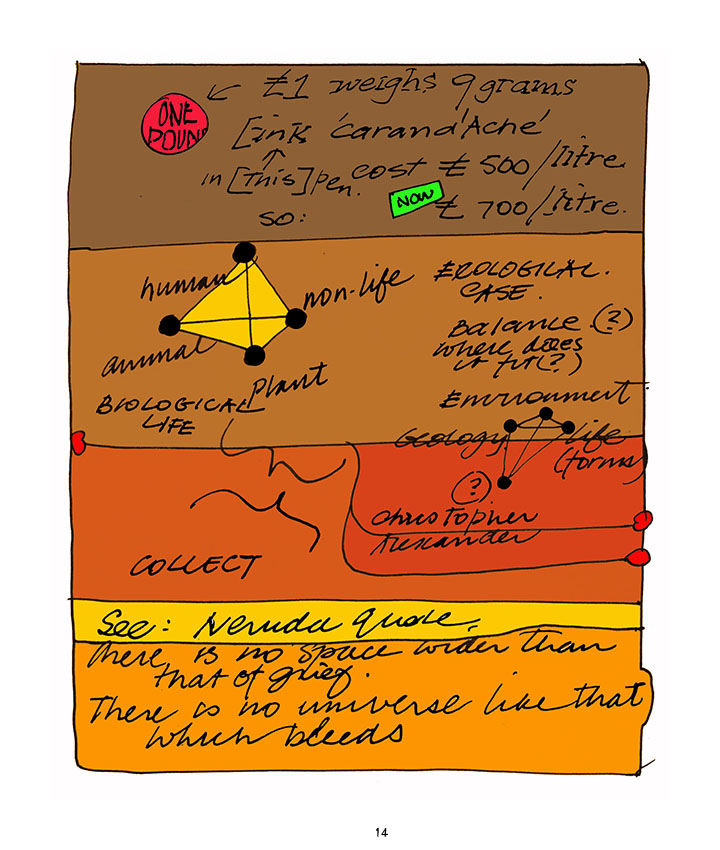 £1 weighs 9 grams
ONE
POUND
[ink 'Carand'Ache'
in [this] pen. cost £500/litre
NOW £700/litre.
so:
human
non-life
animal
plant
BIOLOGICAL
LIFE
ECOLOGICAL.
CASE.
Balance. (?)
where does
it fit (?)
Environment
Geology life
(forms)
(?)
Christopher
Alexander
COLLECT
See: Neruda quote.
There is no space wider than
that of grief.
There is no universe like that
which bleeds
14